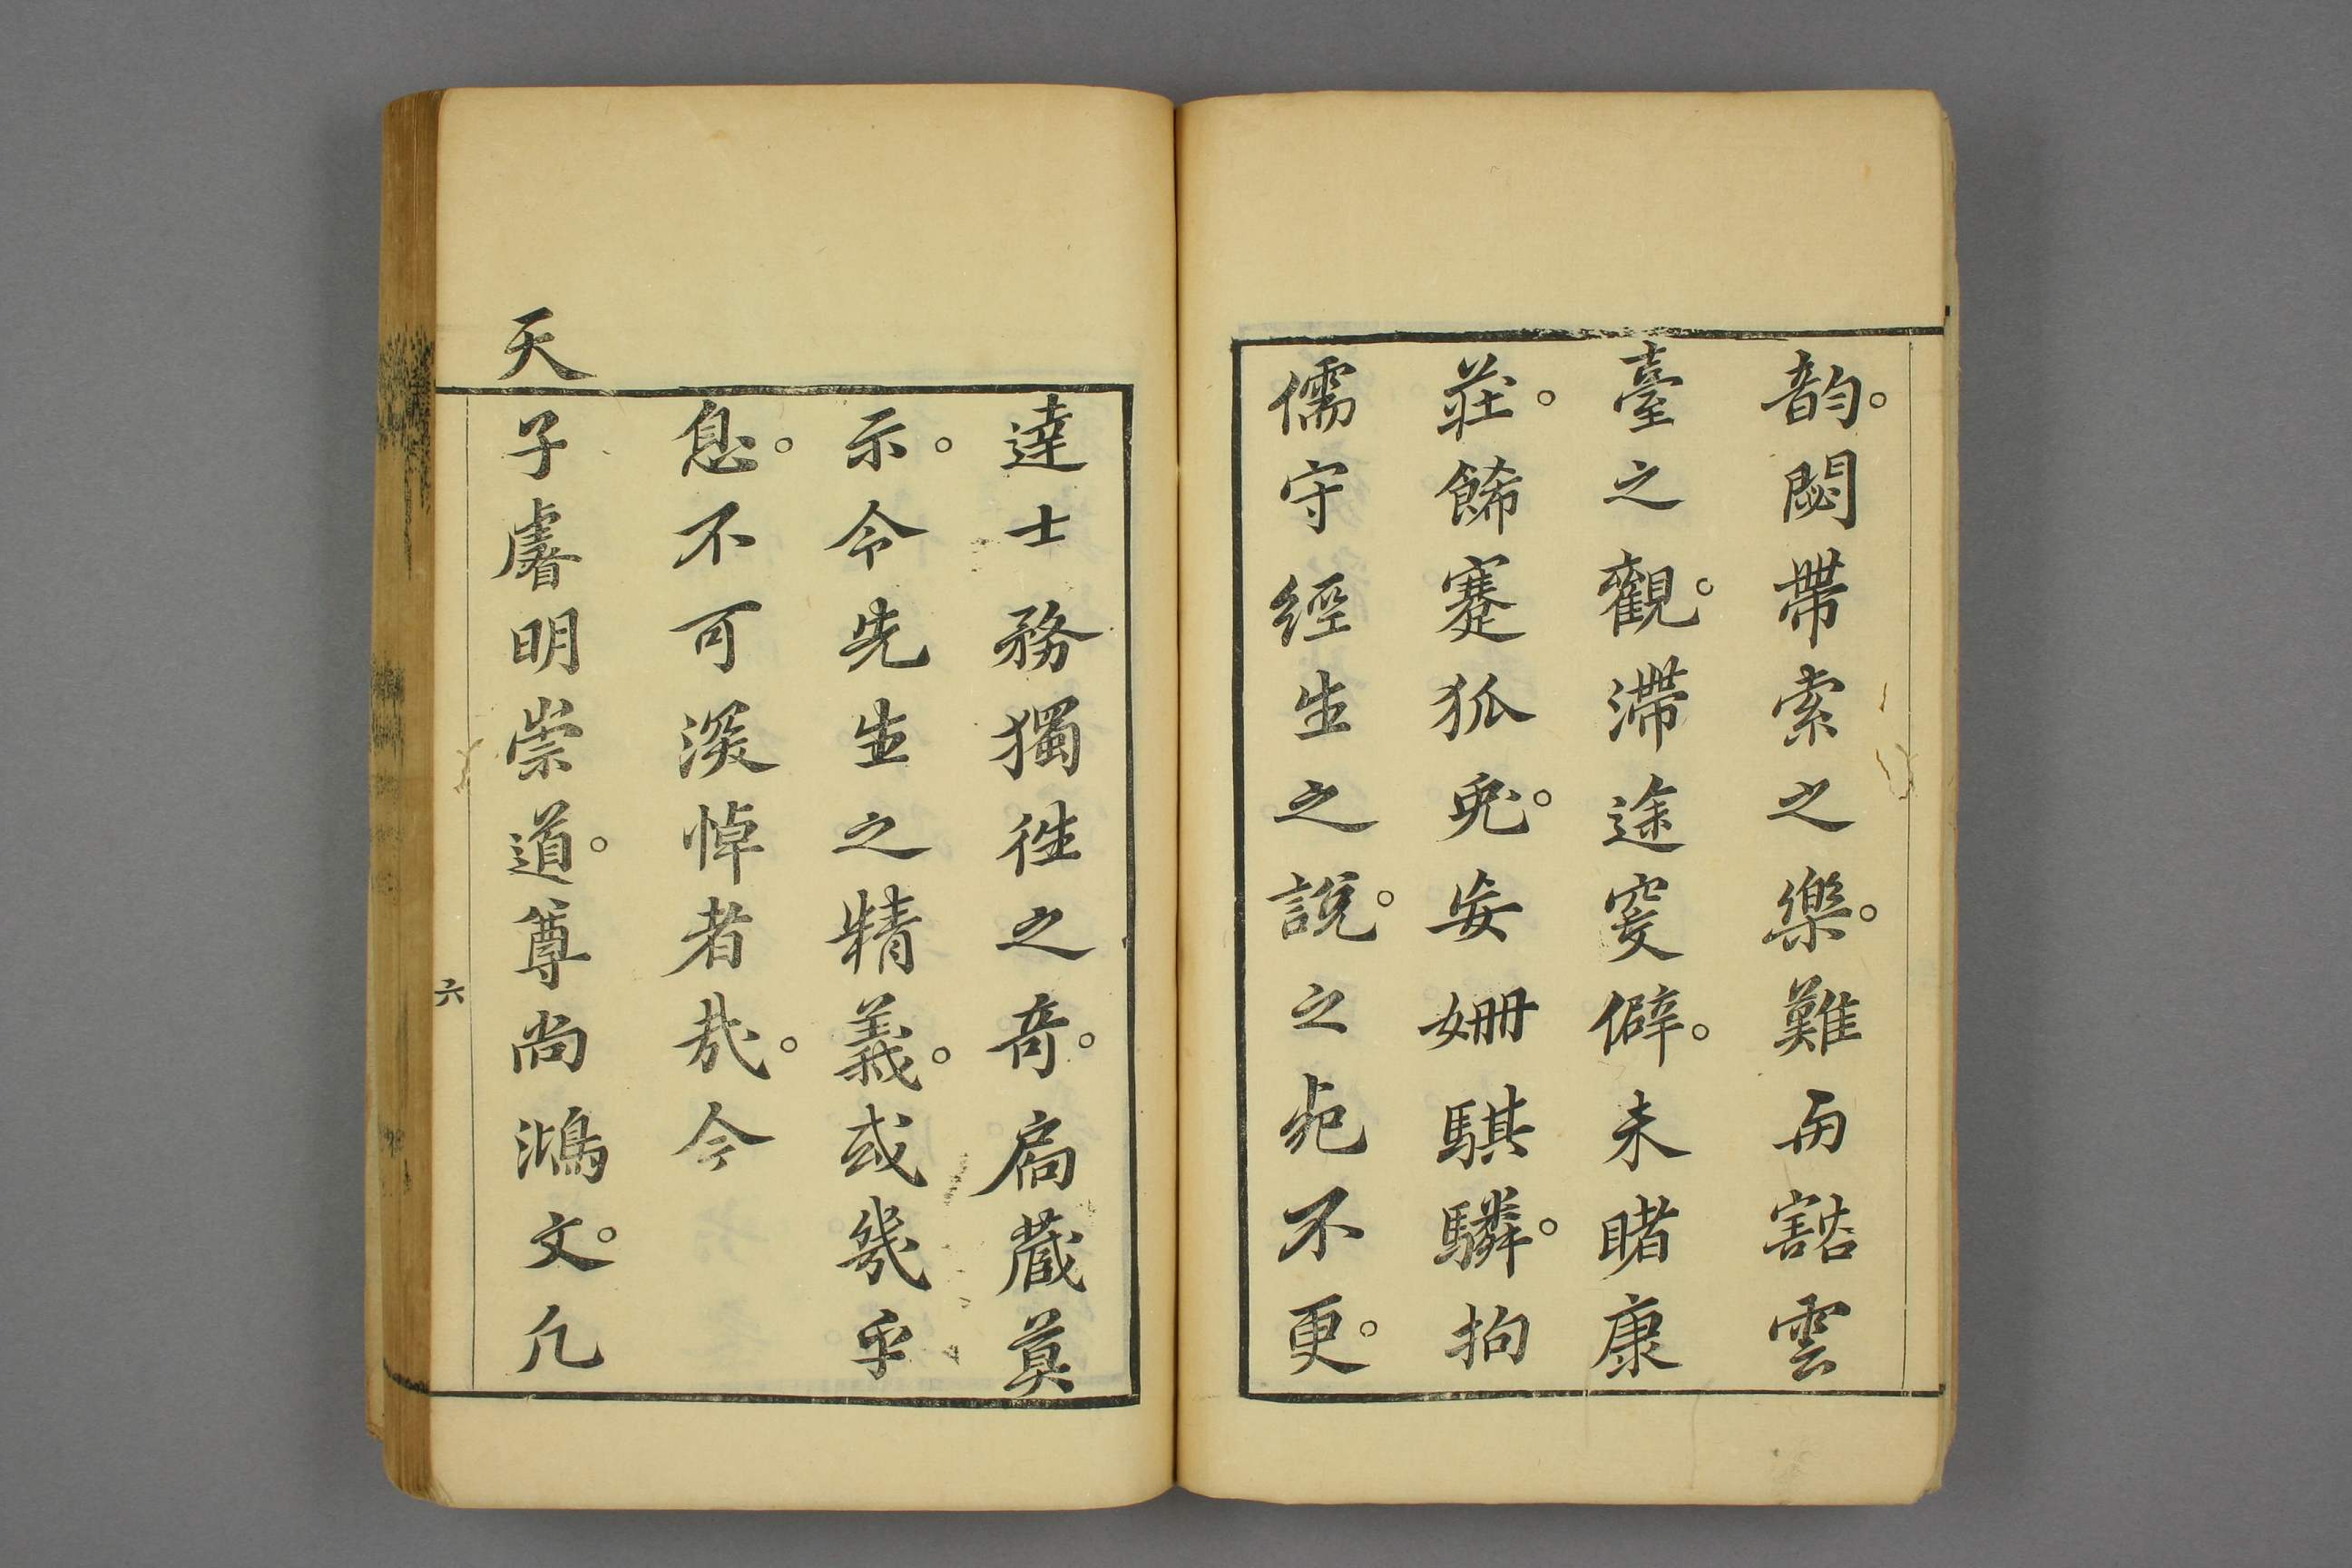 韵。閟帶索之樂。難與豁雲
臺之觀。滯途窔僻。未睹康
莊。餙蹇狐兎。妄姍騏驎。拘
儒守經生之說。之死不更。
達士務獨徃之奇。扄藏莫
示。令先生之精義。或幾乎
息。不可深悼者哉。今
天子睿明崇道。尊尚鴻文。凢
六